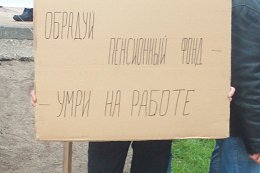 ОБРАДУЙ
ПЕНСИОННЫЙ ФОНД –
– УМРИ НА РАБОТЕ